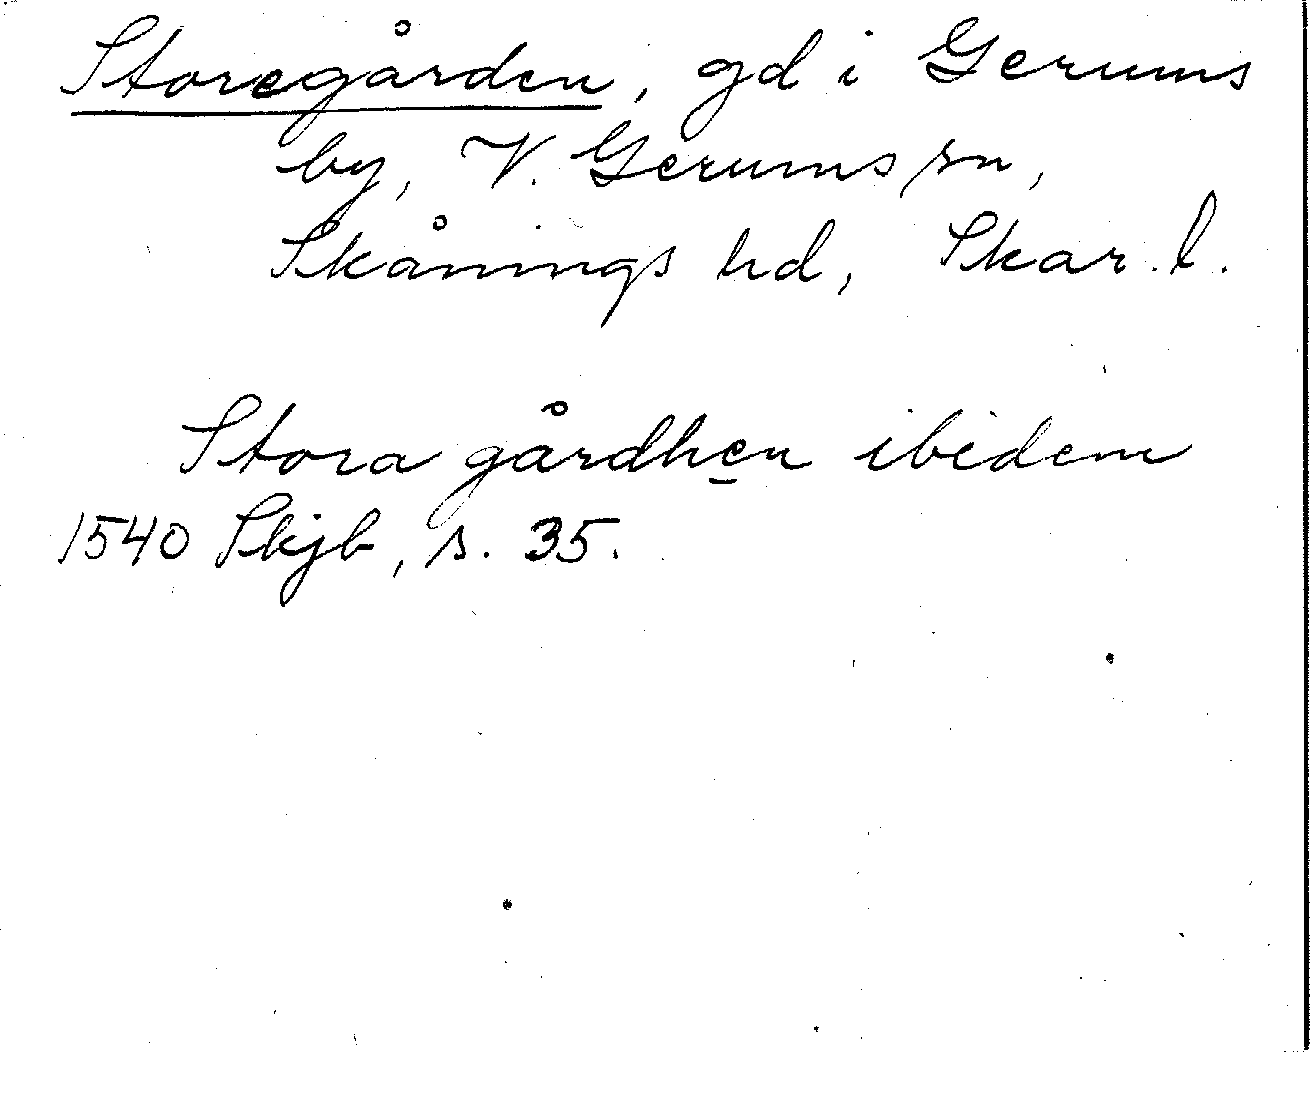 Storegården, gd i Gerums
by, V. Gerums sn,
Skånings hd, Skar. l.
Stora gårdhen ibidem
1540 Skjb, s. 35.